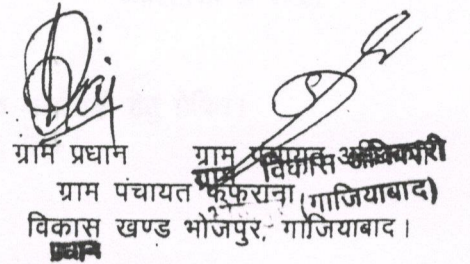 ग्राम प्रधान ग्राम पंचायत अधिकारी
ग्राम विकास अधिकारी
ग्राम पंचायत फफराना (गाजियाबाद)
विकास खण्ड भोजपुर, गाजियाबाद।
प्रधान